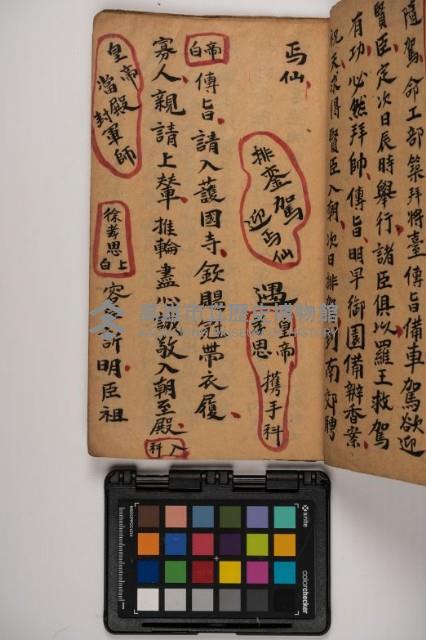 隨駕命工部築拜將臺傳旨備車駕欲迎
賢臣定次日辰時舉行諸臣俱以羅王救駕
有功必然拜帥傳旨明早御園備辦香案
祝天求得賢臣入朝次日排到南郊聘
丐仙
排鑾駕迎丐仙
遇皇帝孝思携手科
帝白
傳旨請入護國寺欽賜冠帶衣履
寡人親請上輦推輪盡心誠敬入朝至殿
入科
皇帝當殿封軍師
徐孝思上白
容訢明臣祖
高雄市立歷史博物館
KAOHSIUNG MUSEUM OF HISTORY
x-rite
colorchecker